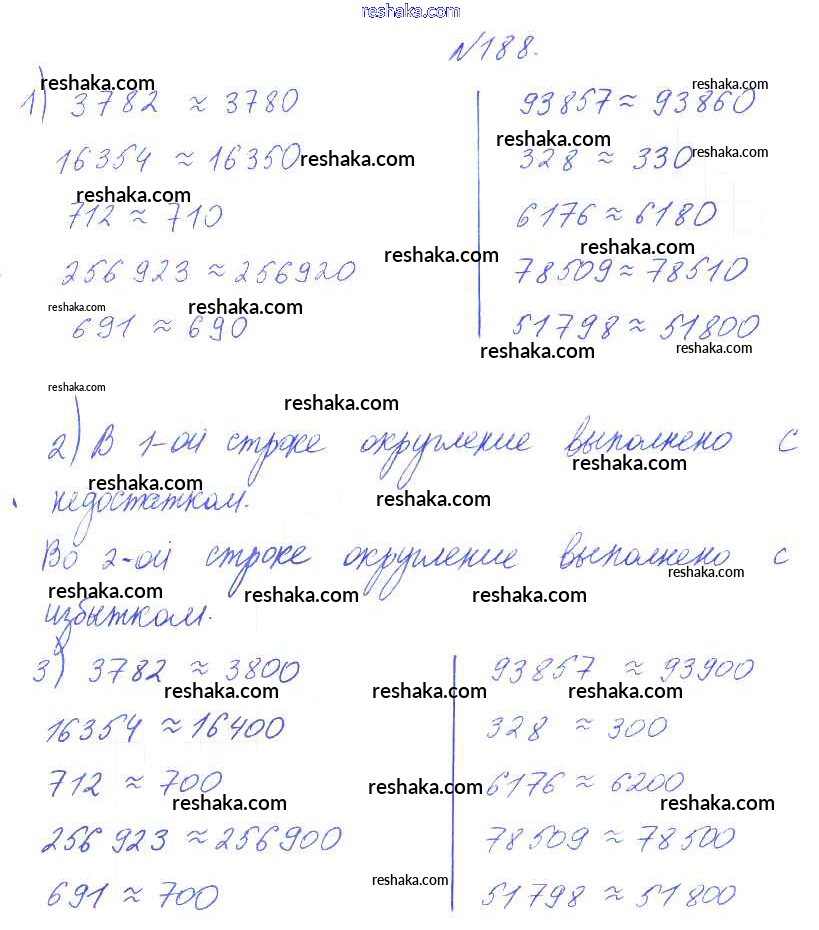 reshaka.com
№188.
reshaka.com reshaka.com
1) 3782 ≈ 3780
93857 ≈ 93860
reshaka.com
16354 ≈ 16350 reshaka.com
328 ≈ 330 reshaka.com
reshaka.com
712 ≈ 710
6176 ≈ 6180
reshaka.com reshaka.com
256 923 ≈ 256920
78509 ≈ 78510
reshaka.com reshaka.com
691 ≈ 690
51798 ≈ 51800
reshaka.com reshaka.com
reshaka.com
reshaka.com
2) В 1-ой строке округление выполнено с
reshaka.com reshaka.com
недостатком.
reshaka.com
Во 2-ой строке округление выполнено с
reshaka.com
reshaka.com reshaka.com reshaka.com
избытком.
3) 3782 ≈ 3800
93857 ≈ 93900
reshaka.com reshaka.com reshaka.com
16354 ≈ 16400
328 ≈ 300
712 ≈ 700
6176 ≈ 6200
reshaka.com reshaka.com reshaka.com
256 923 ≈ 256900
78509 ≈ 78500
reshaka.com
691 ≈ 700
51798 ≈ 51800